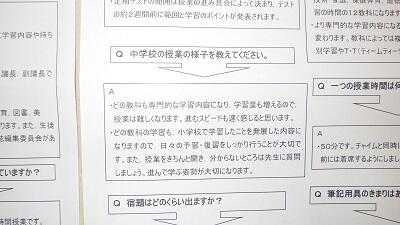 ・定期テストの範囲は授業の進み具合によって決まり、テスト
の約2週間前に範囲と学習のポイントが発表されます。
Q 中学校の授業の様子を教えてください。
A
・どの教科も専門的な学習内容になり、学習量も増えるので、
授業は難しくなります。進むスピードも速く感じると思います。
・どの教科の学習も、小学校で学習したことを発展した内容に
なりますので、日々の予習・復習をしっかり行うことが大切で
す。また、授業をきちんと聞き、分からないところは先生に質問
しましょう。進んで学ぶ姿勢が大切になります。
Q 宿題はどのくらい出ますか?
学習内容や持ち
議長、副議長で
育、図書、美
ります。また、生徒
誌編集委員会があ
ていますか?
時間授業です。
習の時間の12教科になります
・より専門的な学習内容になり
変わります。教科によっては複
別学習やT・T(ティームティーチ
Q 一つの授業時間は何
A
・50分です。チャイムと同時に
前には着席するようにしまし
Q 筆記用具のきまりはあ